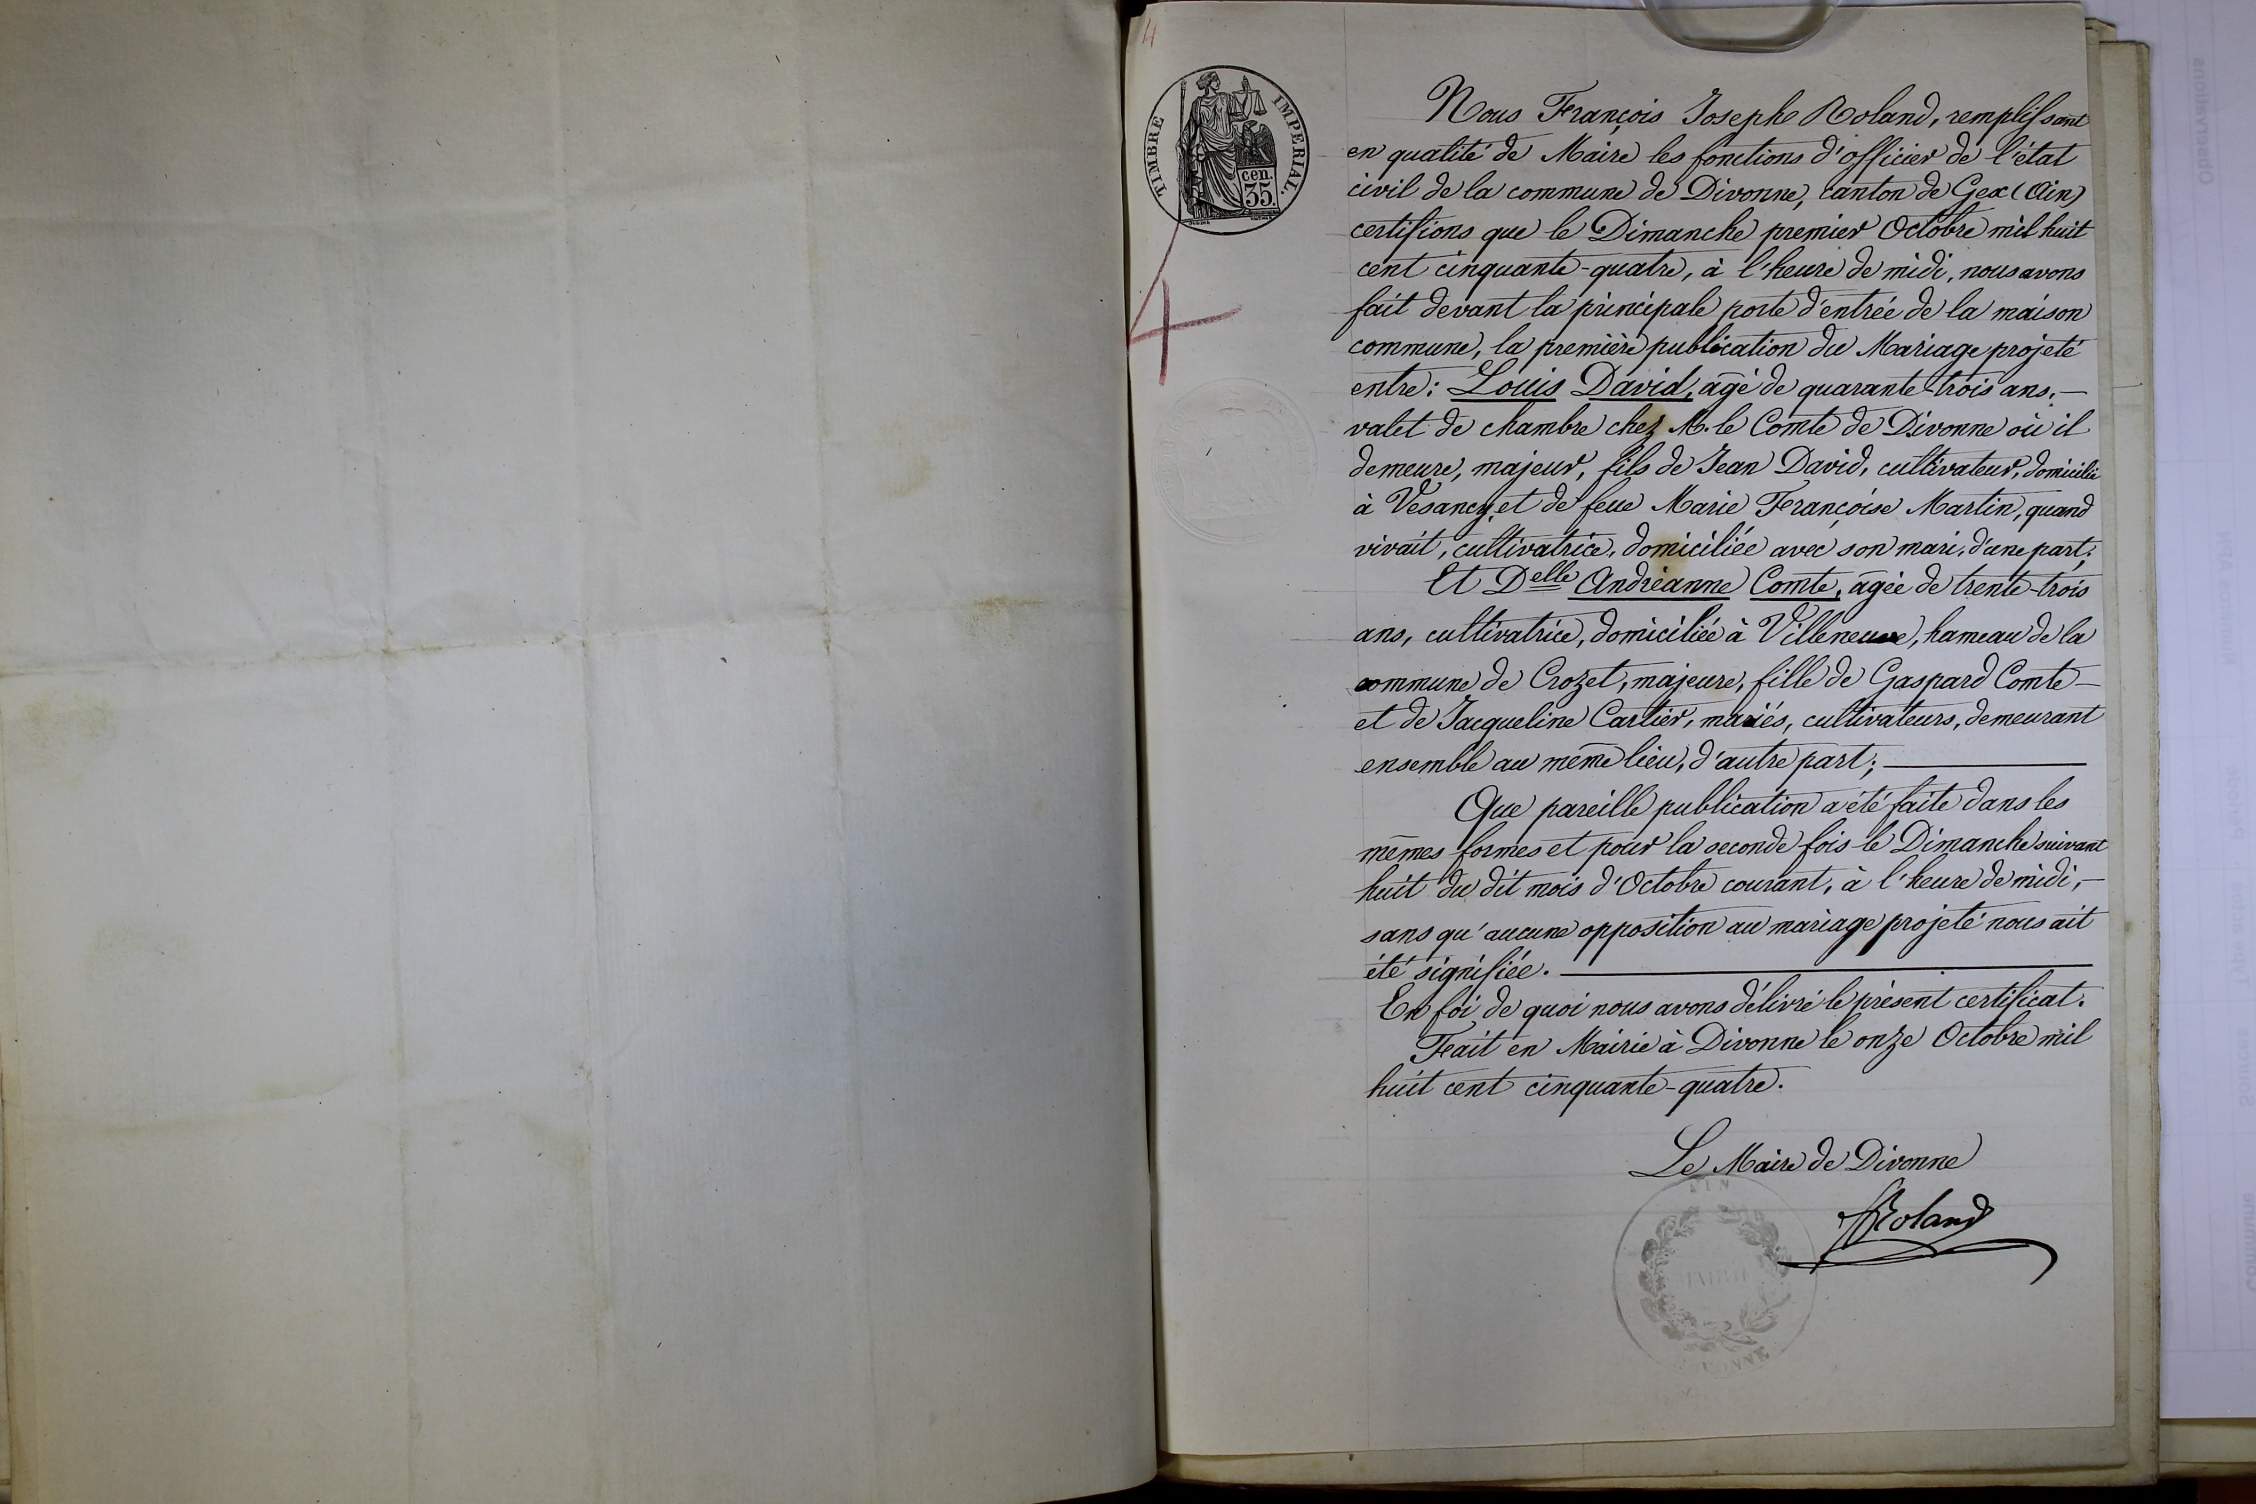 4
TIMBRE IMPERIAL.
cen.
35.
4
Nous François Joseph Roland, remplissant
en qualité de Maire les fonctions d'officier de l'état
civil de la commune de Divonne, canton de Gex (Ain)
certifions que le Dimanche premier Octobre mil huit
cent cinquante-quatre, à l'heure de midi, nous avons
fait devant la principale porte d'entrée de la maison
commune, la première publication du Mariage projeté
entre: Louis David, agé de quarante-trois ans, —
valet de chambre chez M. le Comte de Divonne où il
demeure, majeur, fils de Jean David, cultivateur, domicilié
à Vesancy, et de feue Marie Françoise Martin, quand
vivait, cultivatrice, domiciliée avec son mari, d'une part;
Et Delle Andréanne Comte, agée de trente-trois
ans, cultivatrice, domiciliée à Villeneuve, hameau de la
commune de Crozet, majeure, fille de Gaspard Comte —
et de Jacqueline Cartier, mariés, cultivateurs, demeurant
ensemble au même lieu, d'autre part; —
Que pareille publication a été faite dans les
mêmes formes et pour la seconde fois le Dimanche suivant
huit du dit mois d'Octobre courant, à l'heure de midi, —
sans qu'aucune opposition au mariage projeté nous ait
été signifiée. —
En foi de quoi nous avons délivré le présent certificat.
Fait en Mairie à Divonne le onze Octobre mil
huit cent cinquante-quatre.
Le Maire de Divonne
Roland
Observations
Commune